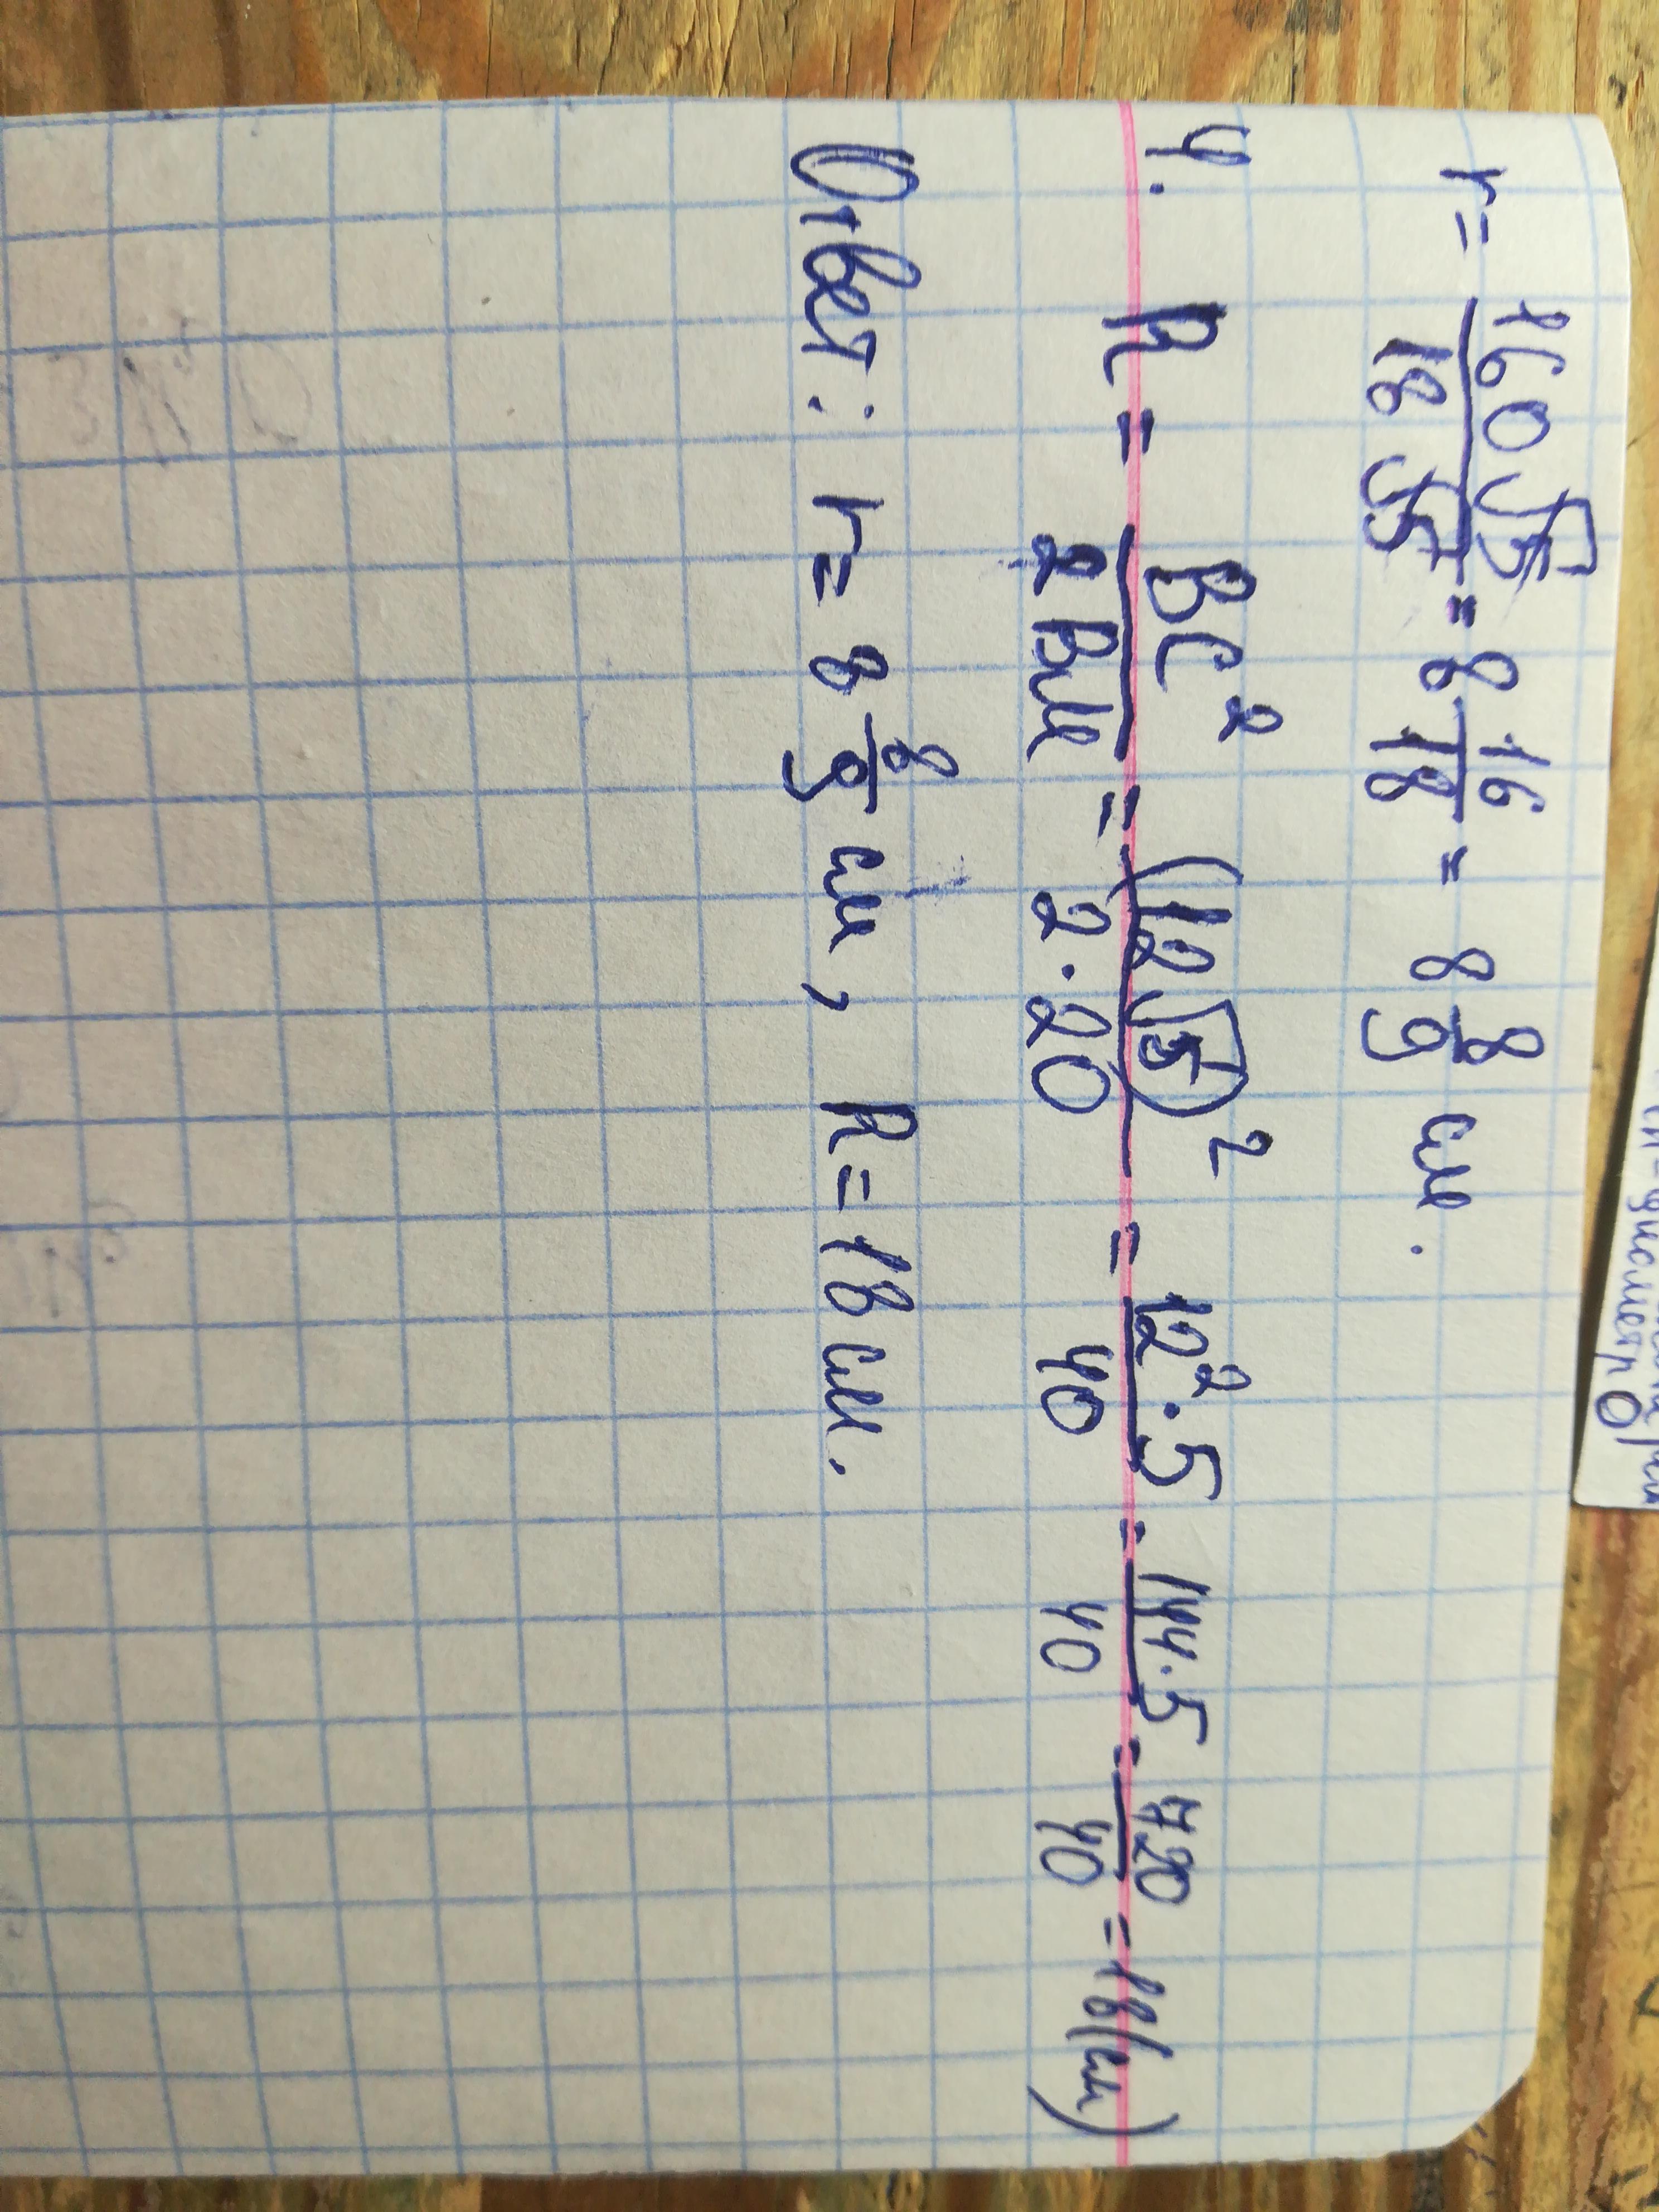 r = 160√5 / 18√5 = 8 16/18 = 8 8/9 см.
4. R = BC² / 2BM = (12√5)² / 2·20 = 12²·5 / 40 = 144·5 / 40 = 720 / 40 = 18(см)
Ответ: r = 8 8/9 см, R = 18 см.
диаметр